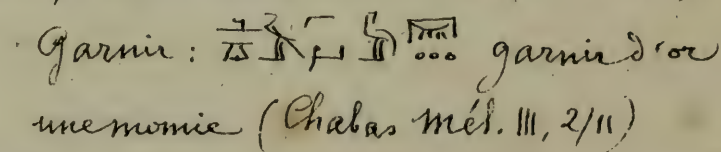 Garnir : garnir d'or
une momie (Chabas Mél. III, 2/11)